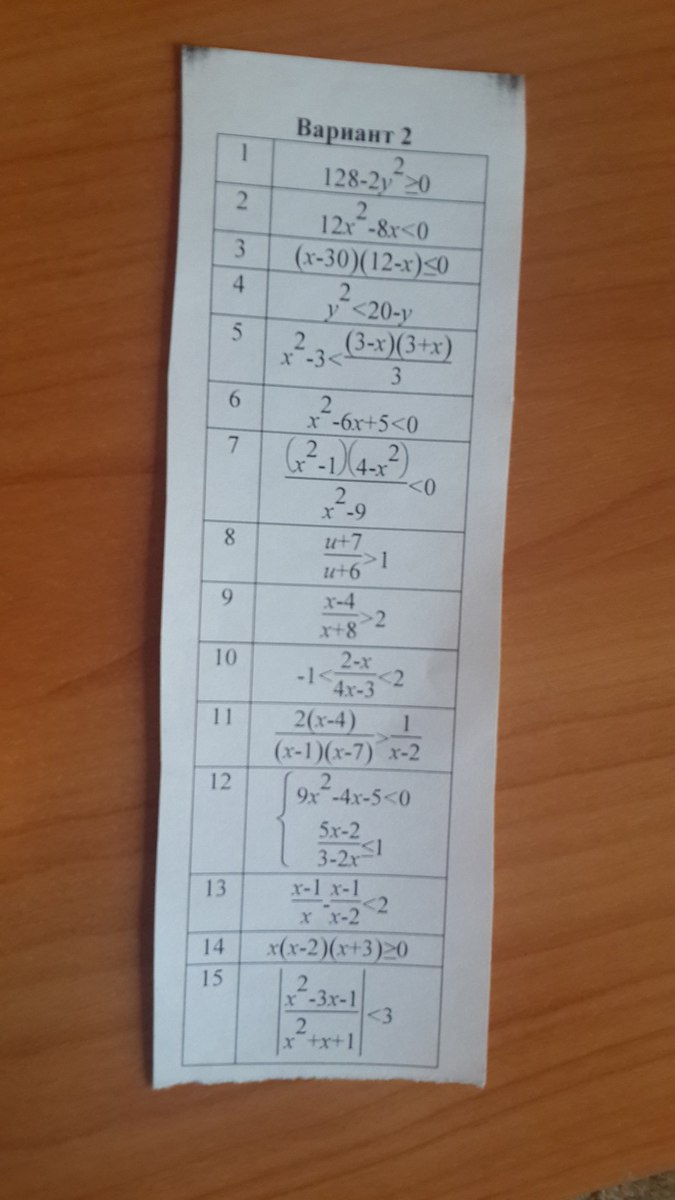 Вариант 2
1 128-2y²≥0
2 12x²-8x<0
3 (x-30)(12-x)≤0
4 y²<20-y
5 x²-3<\frac{(3-x)(3+x)}{3}
6 x²-6x+5<0
7 \frac{(x²-1)(4-x²)}{x²-9}<0
8 \frac{u+7}{u+6}>1
9 \frac{x-4}{x+8}>2
10 -1<\frac{2-x}{4x-3}<2
11 \frac{2(x-4)}{(x-1)(x-7)}>\frac{1}{x-2}
12 { 9x²-4x-5<0
\frac{5x-2}{3-2x}≤1
13 \frac{x-1}{x}-\frac{x-1}{x-2}<2
14 x(x-2)(x+3)≥0
15 |\frac{x²-3x-1}{x²+x+1}|<3